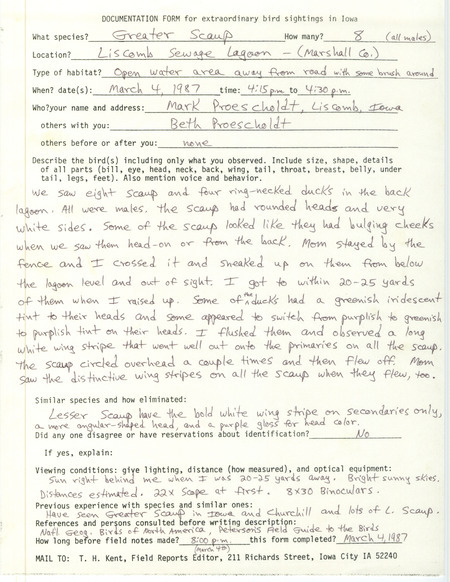 DOCUMENTATION FORM for extraordinary bird sightings in Iowa
What species? Greater Scaup How many? 8 (all males)
Location? Liscomb Sewage Lagoon - (Marshall Co.)
Type of habitat? Open water area away from road with some brush around
When? date(s): March 4, 1987 time: 4:15 p.m. to 4:30 p.m.
Who?your name and address: Mark Proescholdt, Liscomb, Iowa
others with you: Beth Proescholdt
others before or after you: none
Describe the bird(s) including only what you observed. Include size, shape, details
of all parts (bill, eye, head, neck, back, wing, tail, throat, breast, belly, under
tail, legs, feet). Also mention voice and behavior.
We saw eight Scaup and four ring-necked ducks in the back
lagoon. All were males. The scaup had rounded heads and very
white sides. Some of the scaup looked like they had bulging cheeks
when we saw them head-on or from the back. Mom stayed by the
fence and I crossed it and sneaked up on them from below
the lagoon level and out of sight. I got to within 20-25 yards
of them when I raised up. Some of the ducks had a greenish iridescent
tint to their heads and some appeared to switch from purplish to greenish
to purplish tint on their heads. I flushed them and observed a long
white wing stripe that went well out onto the primaries on all the scaup.
The scaup circled overhead a couple times and then flew off. Mom
saw the distinctive wing stripes on all the scaup when they flew, too.
Similar species and how eliminated:
Lesser Scaup have the bold white wing stripe on secondaries only,
a more angular-shaped head, and a purple gloss for head color.
Did any one disagree or have reservations about identification? No
If yes, explain:
Viewing conditions: give lighting, distance (how measured), and optical equipment:
Sun right behind me when I was 20-25 yards away. Bright sunny skies.
Distances estimated. 22X Scope at first. 8X30 Binoculars.
Previous experience with species and similar ones:
Have seen Greater Scaup in Iowa and Churchill and lots of L. Scaup.
References and persons consulted before writing description:
Natl Geog. Birds of North America, Peterson's Field Guide to the Birds
How long before field notes made? 8:00 p.m. this form completed? March 4, 1987
(March 4th)
MAIL TO: T. H. Kent, Field Reports Editor, 211 Richards Street, Iowa City IA 52240